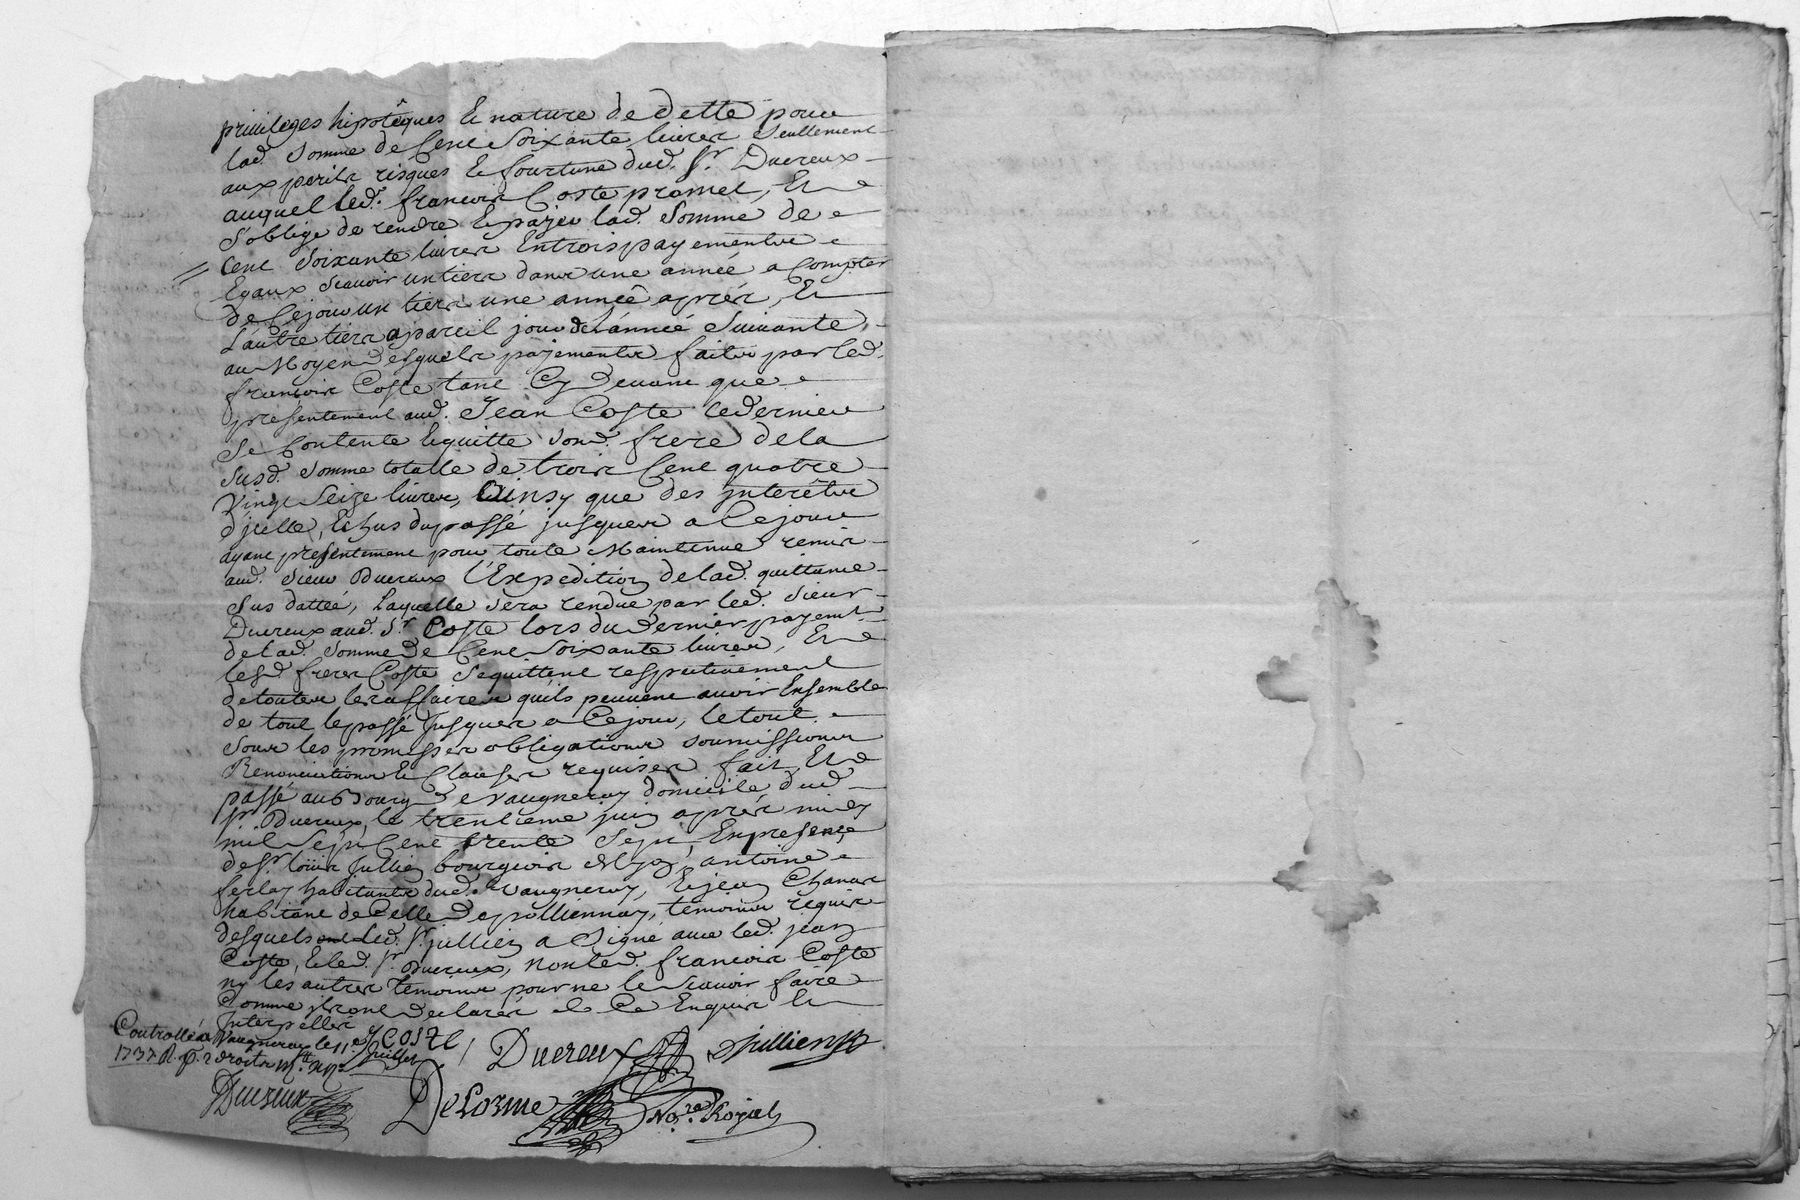 privileges hipotêques & nature de dette pour
lad. somme de Cent Soixante livres seullement
aux perils risques & fourtune dud. Sr. Ducreux
auquel led. francois Coste promet, Et
s'oblige de rendre & payer lad. Somme de
Cent Soixante livres En trois payements
Egaux scavoir un tiers dans une année a Compter
de Cejour un tiers une année aprés, Et
L'autre tiers a pareil jour de l'année suivante
au Moyen desquels payements faits par led.
francois Coste tant Cy devant que
presentement aud. Jean Coste ce dernier
se Contente & quitte sond. frere de la
susd. somme totalle de trois Cent quatre
vingt Seize livres, Ainsy que des jnterêts
d'jcelle, Echus du passé jusques a Cejour
ayant presentement pour toute Maintenue remis
aud. sieur Ducreux l'Expedition de lad. quittance
sus dattée, Laquelle sera rendue par led. Sieur
Ducreux aud. Sr. Coste lors du dernier payemt.
de lad. somme de Cent Soixante livres, Et
lesd. freres Coste sequittent respectivement
de toutes les affaires qu'ils peuvent avoir Ensemble
de tout le passé Jusques a Cejour, le tout
sous les promisses obligations soumissions
Renonciations & Clauses requises fait, Et
passé au Bourg de Vaugneray domicile dud.
Sr. Ducreux, le trentieme juin aprés midy
mil Sept Cent trente Sept, En presence
de Sr. loüis Jullien bourgeois de Lyon, antoine
ferlay habitants dud. Vaugneray, & jean Chanas
habitant de Celle de pollionnay, temoins requis
desquels led. Sr. jullien a Signé avec led. jean
Coste, & led. Sr. Ducreux, non led. francois Coste
ny les autres temoins pour ne le Scavoir faire
Comme ils ont declarés de Ce Enquis &
Interpellés
J COSTE / Ducreux Jullien
Controllé a Vaugneray le 11e. Juillet
1737 R. p. 2 droits
Ducreux
DeLorme No.re Royal